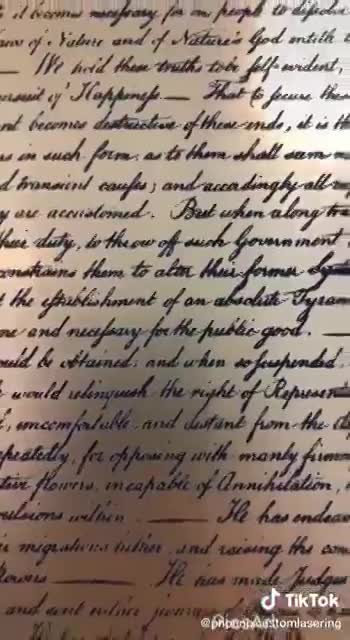 it becomes neceſsary for one people to dissolve
Laws of Nature and of Nature's God entitle
— We hold these truths to be ſelf-evident,
pursuit of Happineſs.— That to secure these
becomes destructive of these ends, it is the
in such form, as to them shall seem
transient cauſes; and accordingly all
are accustomed. But when a long
their duty, to throw off such Government
constrains them to alter their former
the eſtablishment of an absolute
and neceſsary for the public good. —
be obtained; and when so suspended,
would relinquish the right of
uncomfortable, and distant from the
repeatedly, for opposing with manly
incapable of Annihilation,
within. — He has
migrations hither, and raising the
— He has made Judges
and sent hither
TikTok
@phoenixcustomlasering